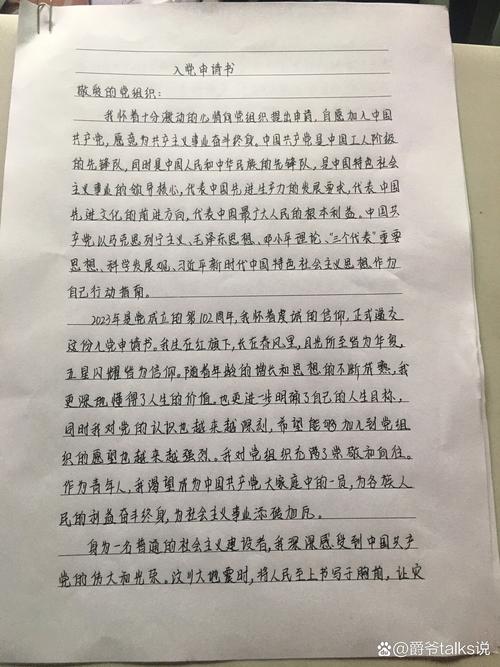 入党申请书
敬爱的党组织：
我怀着十分激动的心情向党组织提出申请，自愿加入中国
共产党，愿意为共产主义事业奋斗终身。中国共产党是中国工人阶级
的先锋队，同时是中国人民和中华民族的先锋队，是中国特色社会
主义事业的领导核心，代表中国先进生产力的发展要求，代表中国
先进文化的前进方向，代表中国最广大人民的根本利益。中国共
产党以马克思列宁主义、毛泽东思想、邓小平理论、“三个代表”重要
思想、科学发展观、习近平新时代中国特色社会主义思想作为
自己行动指南。
2023年是党成立的第102周年，我怀着虔诚的信仰，正式递交
这份入党申请书。我生在红旗下，长在春风里，目光所至皆为华夏，
五星闪耀皆为信仰。随着年龄的增长和思想的不断成熟，我
更深地懂得了人生的价值，也更进一步明确了自己的人生目标，
同时我对党的认识也越来越深刻，希望能够加入到党组
织的愿望也越来越强烈。我对党组织充满了崇敬和向往。
作为青年人，我渴望成为中国共产党大家庭中的一员，为各族人
民的利益奋斗终身，为社会主义事业添砖加瓦。
身为一名普通的社会主义建设者，我深深感受到中国共产
党的伟大和光荣。汶川大地震时，将人民至上书写于胸前，让灾
@爵爷talks说